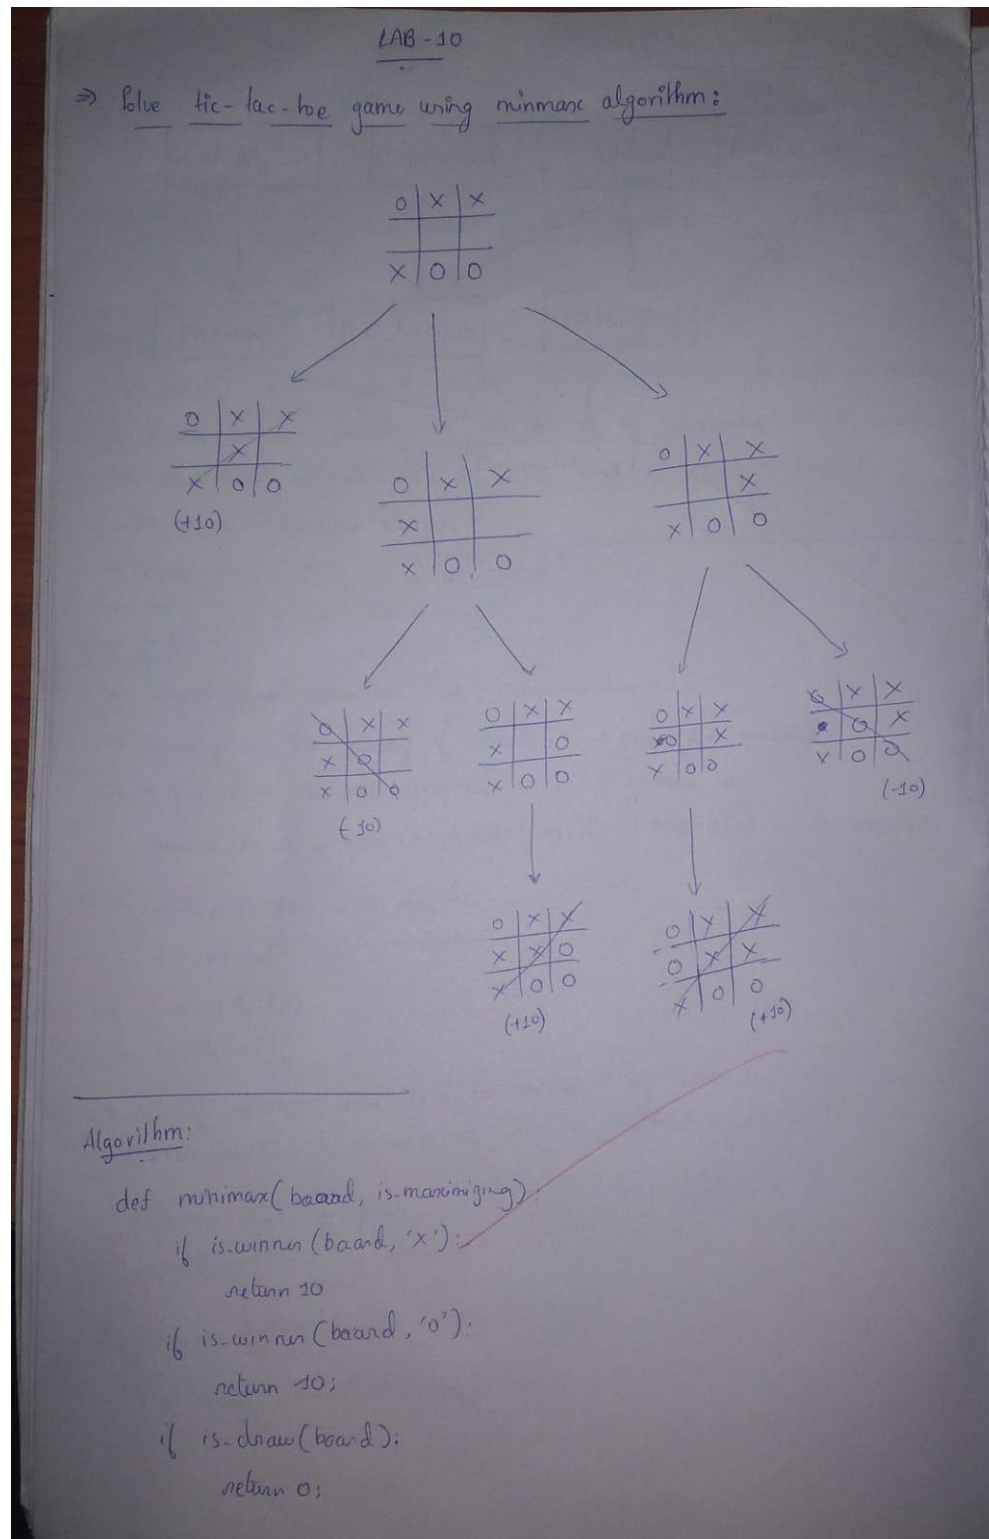 LAB-10
=> Solve tic-tac-toe game using minmax algorithm:
O X X
X O O
O X X
X
X O O
(+10)
O X X
X
X O O
O X X
X
X O O
O X X
X O
X O O
(-10)
O X X
X O
X O O
O X X
O X
X O O
O X X
O X
X O O
(-10)
O X X
X X O
X O O
(+10)
O X X
O X X
X O O
(+10)
Algorithm:
def minimax(board, is-maximizing):
if is-winner (board, 'X'):
return 10
if is-winner (board, 'O'):
return -10;
if is-draw(board):
return 0;